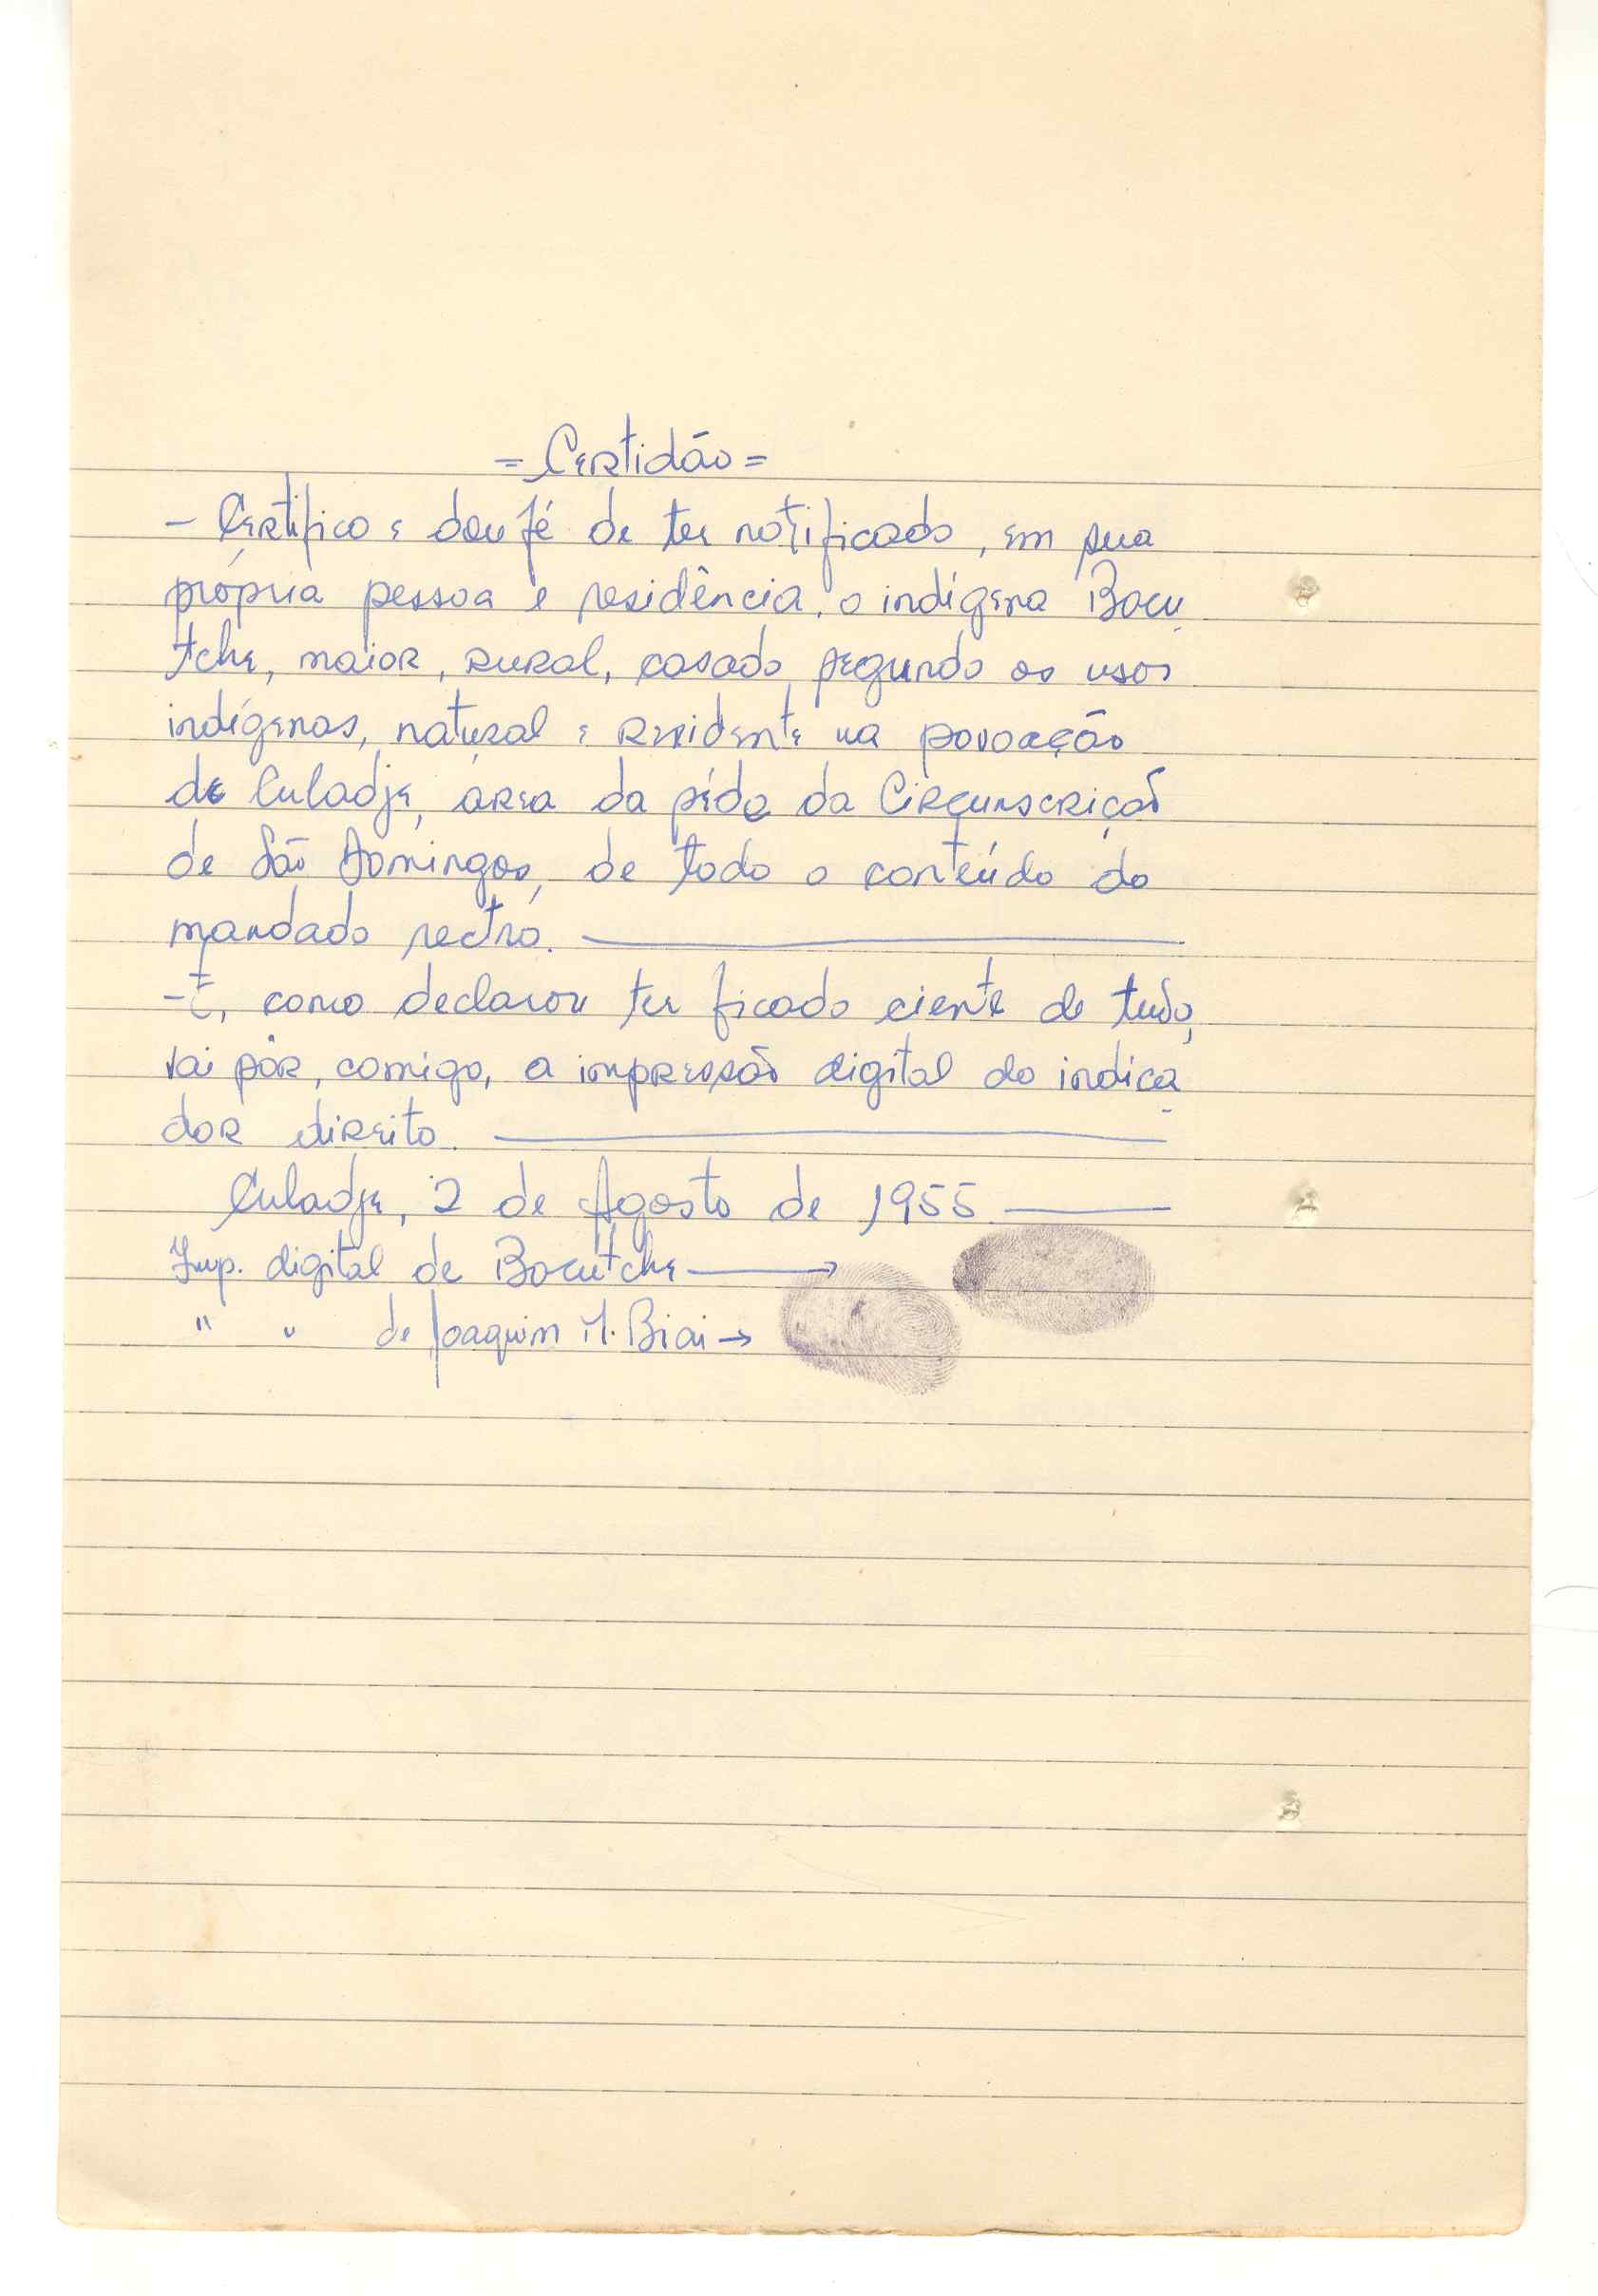 = Certidão =
- Certifico e dou fé de ter notificado, em sua
própria pessoa e residência, o indígena Bocu
tche, maior, rural, casado segundo os usos
indígenas, natural e residente na povoação
de Culadje, área da séde da Circunscrição
de São Domingos, de todo o conteúdo do
mandado rectro.
- E, como declarou ter ficado ciente de tudo,
vai pôr, comigo, a impressão digital do indica
dor direito.
Culadje, 2 de Agosto de 1955
Imp. digital de Bocutche
" " de Joaquim M. Biai